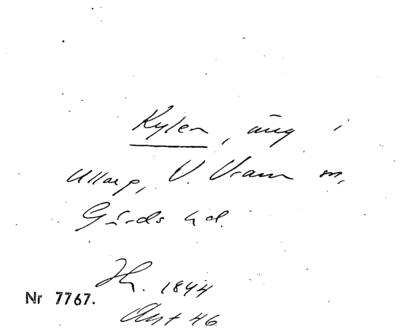 Kylen, äng i
Ullarp, V. Vram sn,
Gärds hd.
1844
Nr 7767.
Akt 46